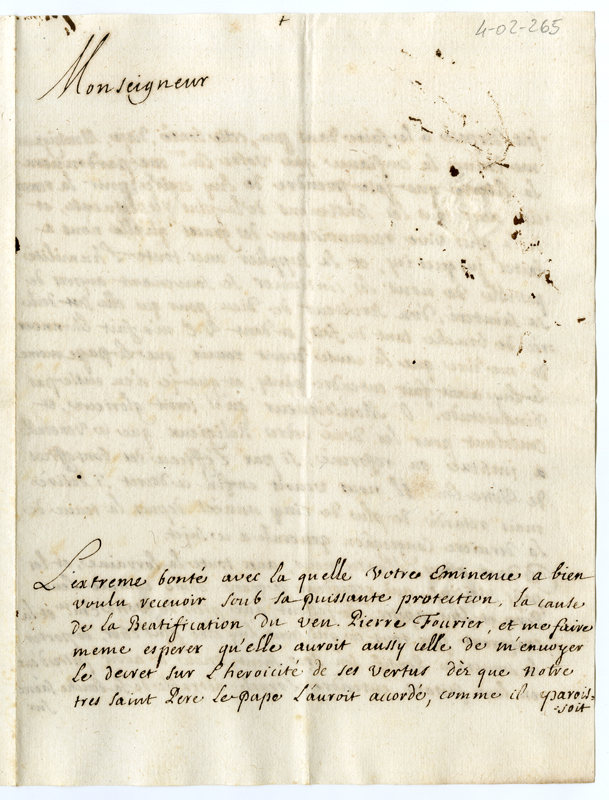 4-02-265
Monseigneur
L'extreme bonté avec la quelle Votre Eminence a bien
voulu recevoir soub sa puissante protection, la cause
de la Beatification du ven. Pierre Fourier, et me faire
meme esperer qu'elle auroit aussy celle de m'envoyer
le decret sur l'heroicité de ses vertus dèz que notre
tres saint Pere le Pape l'auroit accordé, comme il parois=
=soit